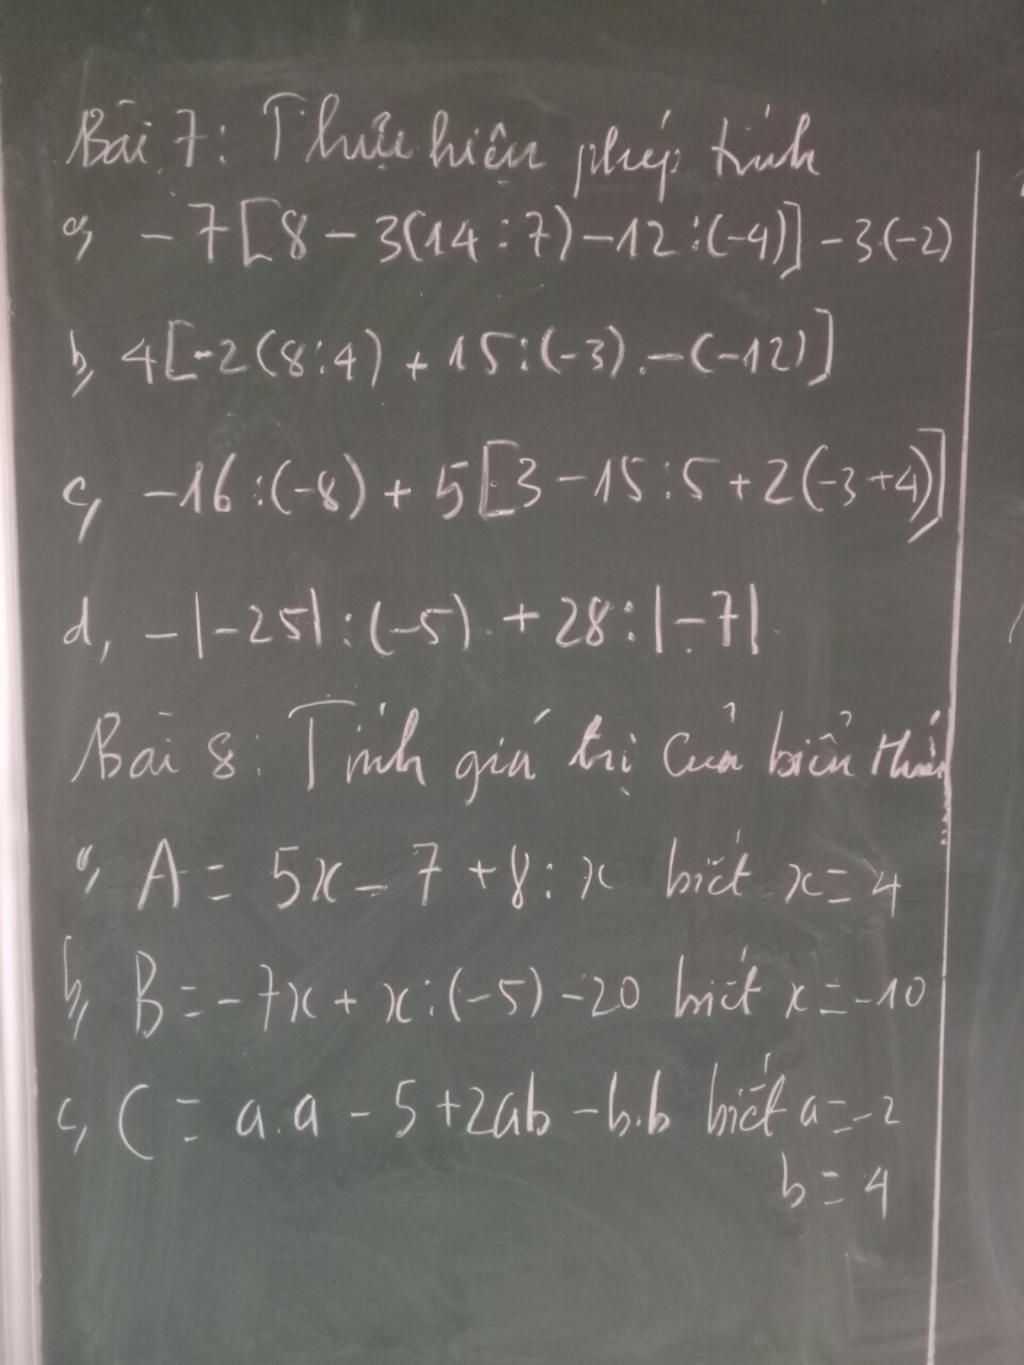 Bài 7: Thực hiện phép tính
a, -7[8-3(14:7)-12:(-4)]-3.(-2)
b, 4[-2(8:4)+15:(-3)-(-12)]
c, -16:(-8)+5[3-15:5+2(-3+4)]
d, -|-25|:(-5)+28:|-7|
Bài 8: Tính giá trị của biểu thức
a, A = 5x - 7 + 8 : x biết x = 4
b, B = -7x + x:(-5) - 20 biết x = -10
c, C = a.a - 5 + 2ab - b.b biết a = -2
b = 4